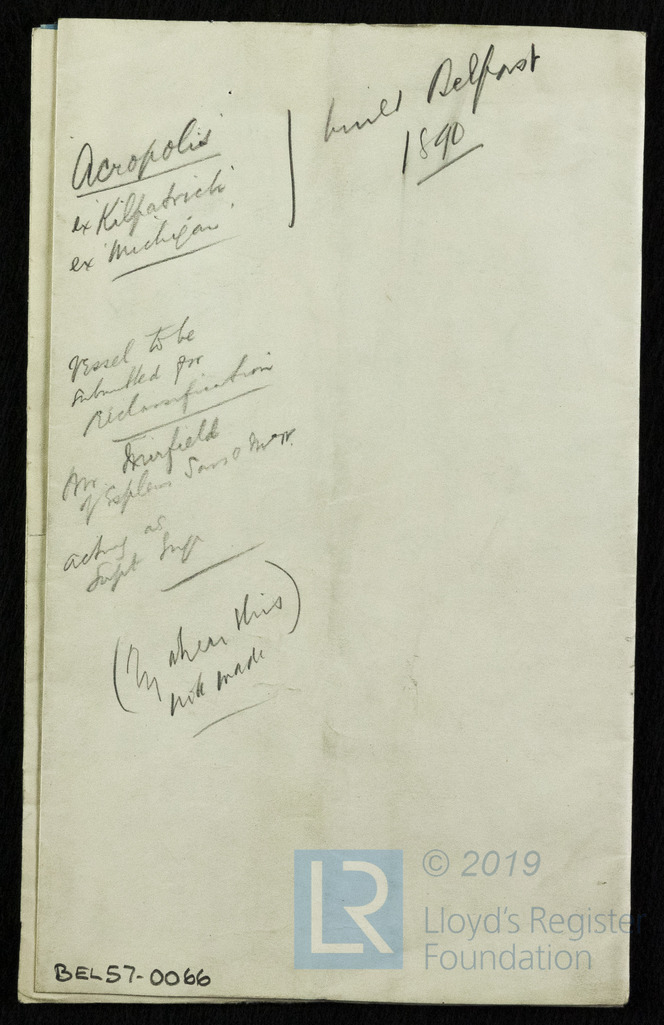 "Acropolis"
ex "Kilpatrick"
ex "Michigan".
built Belfast
1890
Vessel to be
submitted for
Reclassification
Mr. Muirfield
of Esplen Sons &
acting as
Supt
this
note made
LR
© 2019
Lloyd's Register
Foundation
BEL57-0066